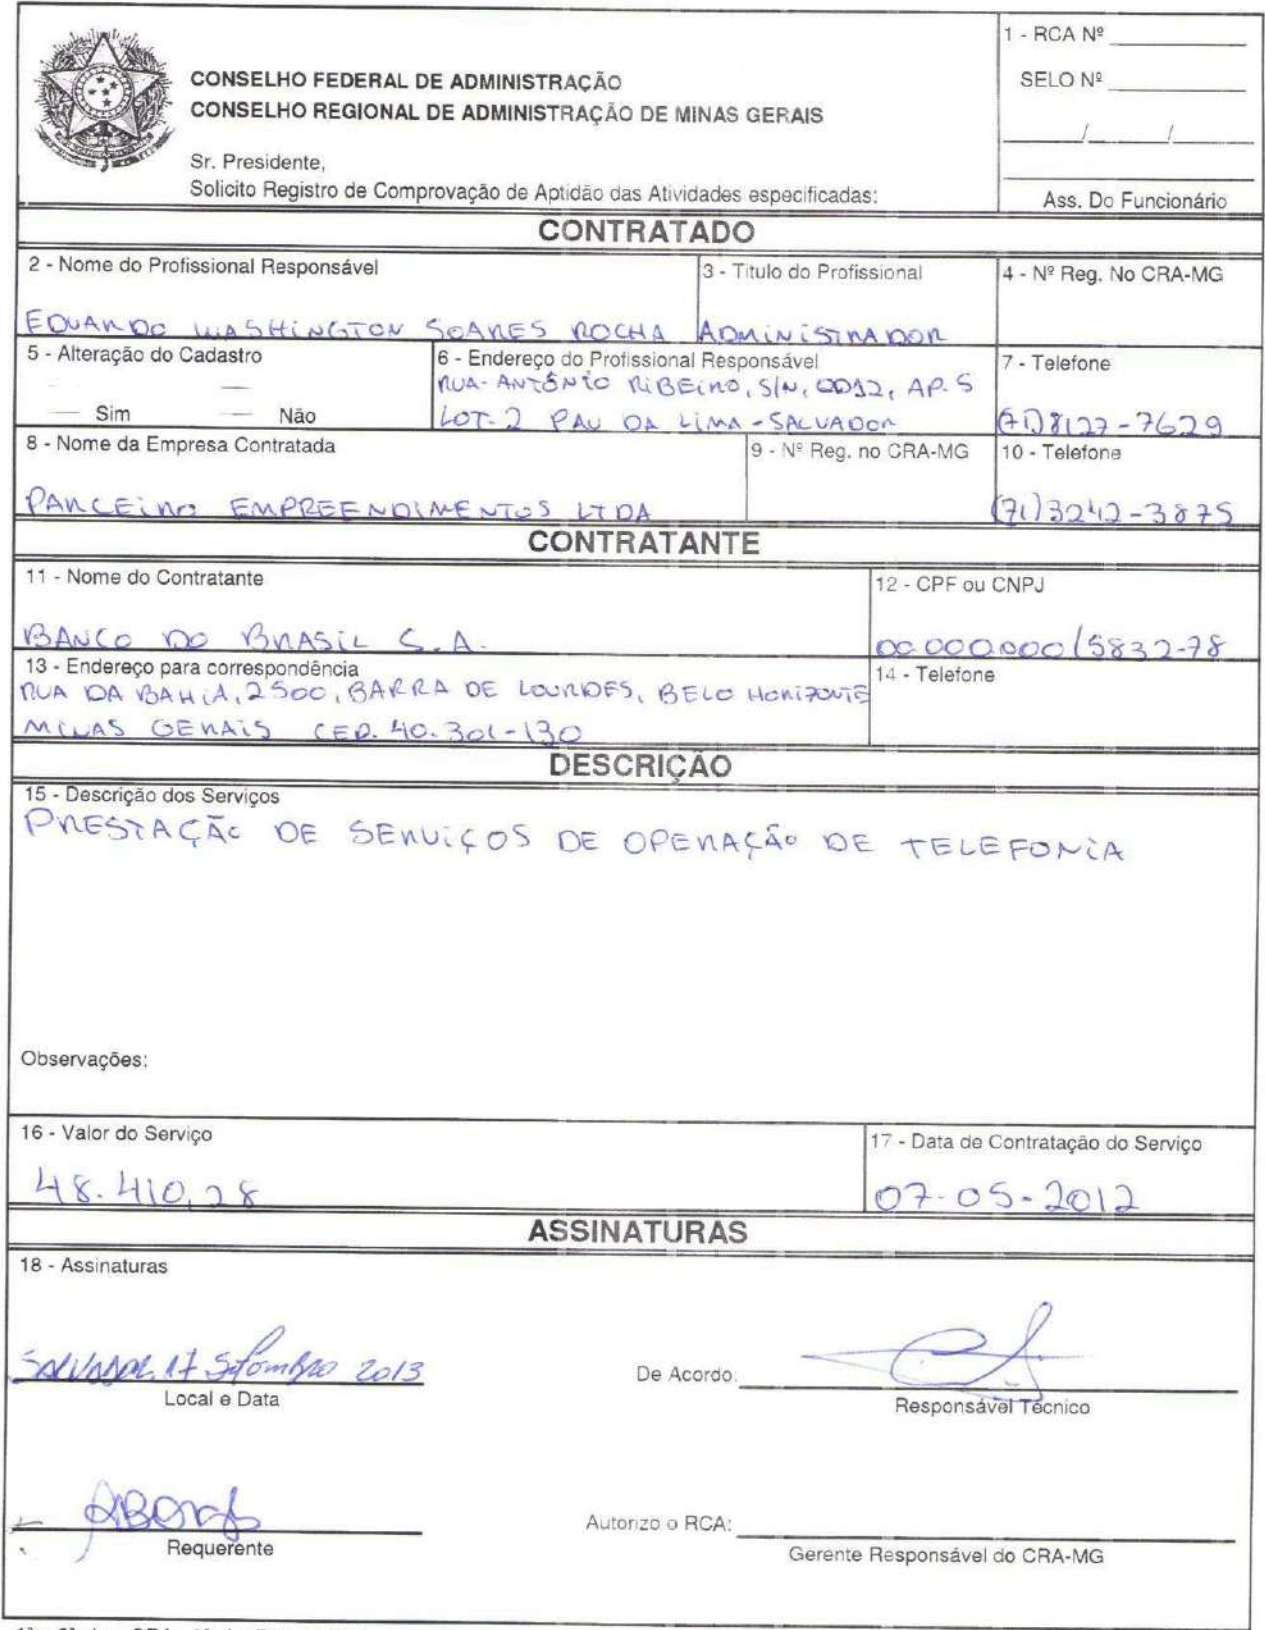 1 - RCA Nº
SELO Nº
/ /
Ass. Do Funcionário
CONSELHO FEDERAL DE ADMINISTRAÇÃO
CONSELHO REGIONAL DE ADMINISTRAÇÃO DE MINAS GERAIS
Sr. Presidente,
Solicito Registro de Comprovação de Aptidão das Atividades especificadas:
CONTRATADO
2 - Nome do Profissional Responsável
EDUARDO WASHINGTON SOARES ROCHA
3 - Titulo do Profissional
ADMINISTRADOR
4 - Nº Reg. No CRA-MG
5 - Alteração do Cadastro
Sim Não
6 - Endereço do Profissional Responsável
RUA-ANTÔNIO RIBEIRO, S/N, QD12, AP. 5
LOT. 2 PAU DA LIMA - SALVADOR
7 - Telefone
(71)8127-7629
8 - Nome da Empresa Contratada
PARCEIRO EMPREENDIMENTOS LTDA
9 - Nº Reg. no CRA-MG
10 - Telefone
(71)3242-3875
CONTRATANTE
11 - Nome do Contratante
BANCO DO BRASIL S.A.
12 - CPF ou CNPJ
00.000.000/5832-78
13 - Endereço para correspondência
RUA DA BAHIA, 2500, BARRA DE LOURDES, BELO HORIZONTE
MINAS GERAIS CEP. 40.301-130
14 - Telefone
DESCRIÇÃO
15 - Descrição dos Serviços
PRESTAÇÃO DE SERVIÇOS DE OPERAÇÃO DE TELEFONIA
Observações:
16 - Valor do Serviço
48.410,28
17 - Data de Contratação do Serviço
07-05-2012
ASSINATURAS
18 - Assinaturas
SALVADOR, 17 Setembro 2013
Local e Data
De Acordo:
Responsável Técnico
Requerente
Autorizo o RCA:
Gerente Responsável do CRA-MG